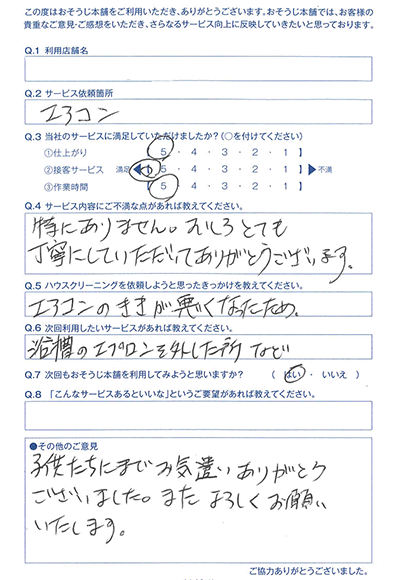 この度はおそうじ本舗をご利用いただき、ありがとうございます。おそうじ本舗では、お客様の
貴重なご意見・ご感想をいただき、さらなるサービス向上に反映していきたいと思っております。
Q.1 利用店舗名
Q.2 サービス依頼箇所
エアコン
Q.3 当社のサービスに満足していただけましたか?(○を付けてください)
①仕上がり 【 5 ・ 4 ・ 3 ・ 2 ・ 1 】
②接客サービス 満足 ◀【 5 ・ 4 ・ 3 ・ 2 ・ 1 】▶ 不満
③作業時間 【 5 ・ 4 ・ 3 ・ 2 ・ 1 】
Q.4 サービス内容にご不満な点があれば教えてください。
特にありません。むしろとても
丁寧にしていただいてありがとうございます。
Q.5 ハウスクリーニングを依頼しようと思ったきっかけを教えてください。
エアコンのききが悪くなったため。
Q.6 次回利用したいサービスがあれば教えてください。
浴槽のエプロンを外した所 など
Q.7 次回もおそうじ本舗を利用してみようと思いますか? ( はい ・ いいえ )
Q.8 「こんなサービスあるといいな」というご要望があれば教えてください。
●その他のご意見
子供たちにまでお気遣いありがとう
ございました。また よろしくお願い
いたします。
ご協力ありがとうございました。